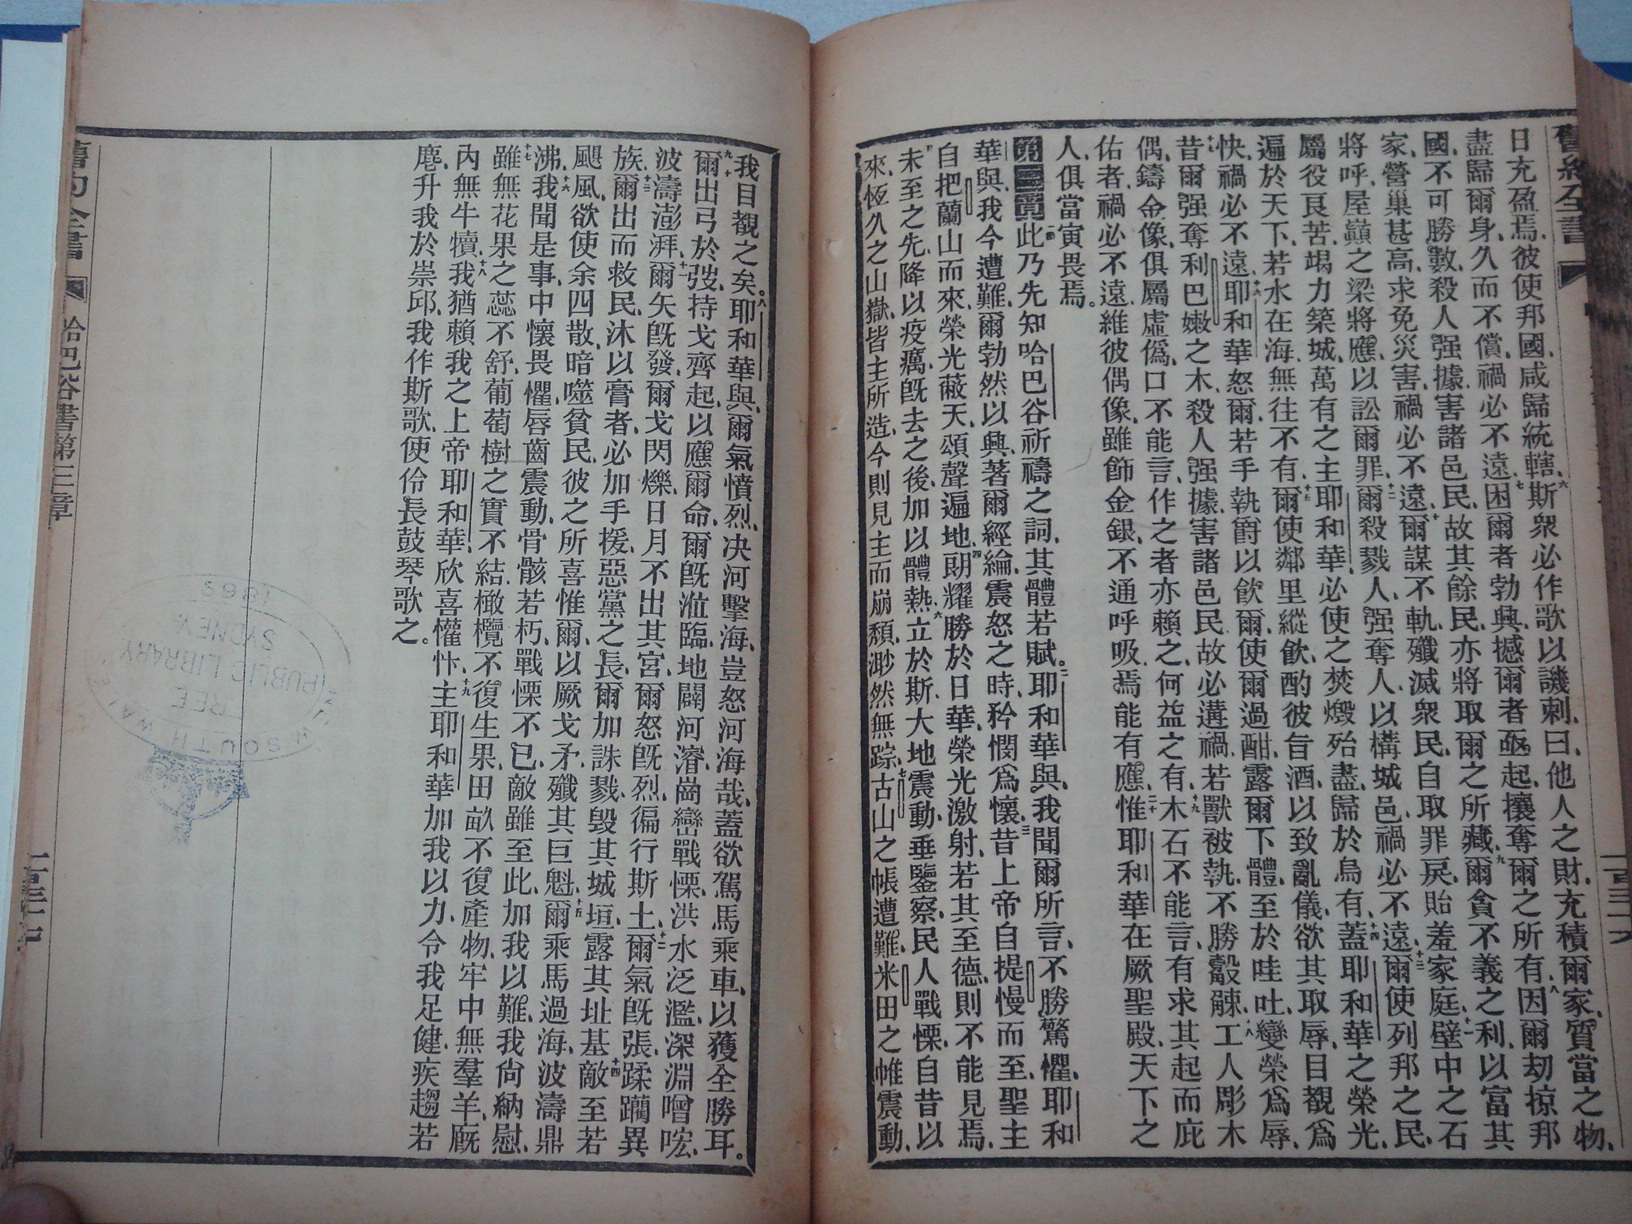 舊約全書
日充盈焉彼使邦國咸歸統轄六斯衆必作歌以譏刺曰他人之財充積爾家質當之物
盡歸爾身久而不償禍必不遠七困爾者勃興撼爾者亟起攘奪爾之所有八因爾刧掠邦
國不可勝數殺人强據害諸邑民故其餘民亦將取爾之所藏九爾貪不義之利以富其
家營巢甚高求免災害禍必不遠十爾謀不軌殲滅衆民自取罪戾貽羞家庭十一壁中之石
將呼屋顚之梁將應以訟爾罪十二爾殺戮人强奪人以構城邑禍必不遠十三爾使列邦之民
屬役艮苦竭力築城萬有之主耶和華必使之焚燬殆盡歸於烏有十四蓋耶和華之榮光
遍於天下若水在海無往不有十五爾使鄰里縱飮酌彼旨酒以致亂儀欲其取辱目覩爲
快禍必不遠十六耶和華怒爾若手執爵以飮爾使爾過酣露爾下體至於哇吐變榮爲辱
昔爾强奪利巴嫩之木殺人强據害諸邑民故必遘禍若獸被執不勝觳觫十八工人彫木
偶鑄金像俱屬虛僞口不能言作之者亦賴之何益之有十九木石不能言有求其起而庇
佑者禍必不遠維彼偶像雖飾金銀不通呼吸焉能有應二十惟耶和華在厥聖殿天下之
人俱當寅畏焉
第三章一此乃先知哈巴谷祈禱之詞其體若賦二耶和華與我聞爾所言不勝驚懼耶和
華與我今遭難爾勃然以興著爾經綸震怒之時矜憫爲懷三昔上帝自提慢而至聖主
自把蘭山而來榮光蔽天頌聲遍地四明耀勝於日華榮光激射若其至德則不能見焉
五未至之先降以疫癘旣去之後加以體熱六立於斯大地震動垂鑒察民人戰慄自昔以
來恆久之山嶽皆主所造今則見主而崩頹渺然無踪七古山之帳遭難米田之帷震動
我目覩之矣八耶和華與爾氣憤烈决河擊海豈怒河海哉蓋欲駕馬乘車以獲全勝耳
九爾出弓於弢持戈齊起以應爾命爾旣涖臨地闢河濬十崗巒戰慄洪水泛濫深淵噌吰
波濤澎湃十一爾矢旣發爾戈閃爍日月不出其宮十二爾怒旣烈徧行斯土爾氣旣張蹂躪異
族十三爾出而救民沐以膏者必加手援惡黨之長爾加誅戮毀其城垣露其址基十四敵至若
颶風欲使余四散暗噬貧民彼之所喜惟爾以厥戈矛殲其巨魁十五爾乘馬過海波濤鼎
沸十六我聞是事中懷畏懼唇齒震動骨骸若朽戰慄不已敵雖至此加我以難我尙納慰
十七雖無花果之蕊不舒葡萄樹之實不結橄欖不復生果田畝不復產物牢中無羣羊廐
內無牛犢十八我猶賴我之上帝耶和華欣喜懽忭十九主耶和華加我以力令我足健疾趨若
麀升我於崇邱我作斯歌使伶長鼓琴歌之
舊約全書 哈巴谷書第三章
FREE
PUBLIC LIBRARY
SYDNEY
1883